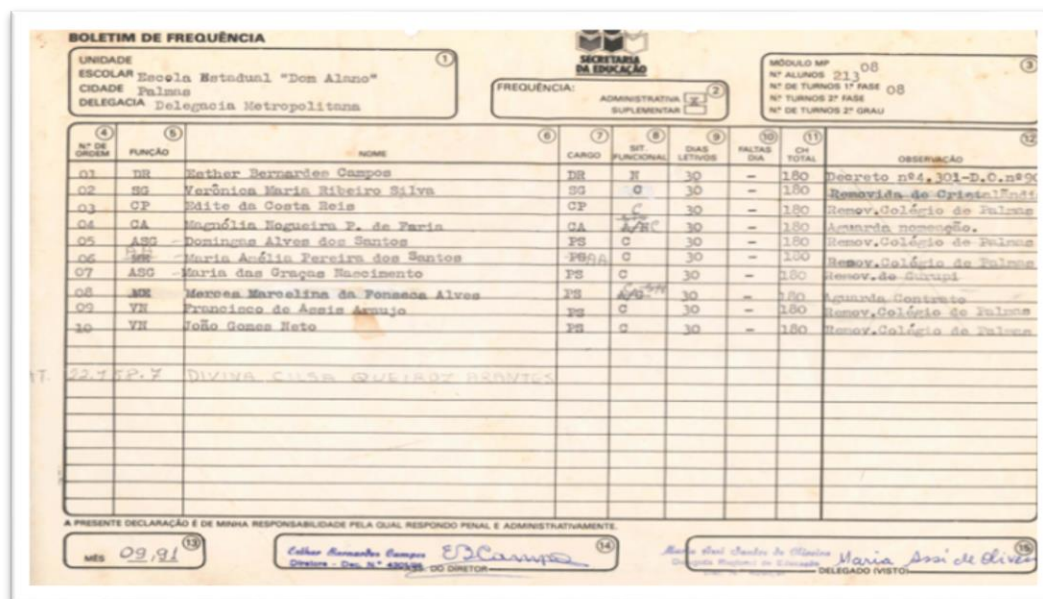 BOLETIM DE FREQUÊNCIA
UNIDADE
ESCOLAR Escola Estadual "Dom Alano"
CIDADE Palmas
DELEGACIA Delegacia Metropolitana
1
SECRETARIA
DA EDUCAÇÃO
FREQUÊNCIA:
2
ADMINISTRATIVA x
SUPLEMENTAR
MÓDULO MP 08
3
Nº ALUNOS 213
Nº DE TURNOS 1ª FASE 08
Nº TURNOS 2ª FASE
Nº DE TURNOS 2º GRAU
4 5 6 7 8 9 10 11 12
Nº DE ORDEM FUNÇÃO NOME CARGO SIT. FUNCIONAL DIAS LETIVOS FALTAS DIA CH TOTAL OBSERVAÇÃO
01 DR Esther Bernardes Campos DR N 30 - 180 Decreto nº4.301-D.O.nº90
02 SG Verônica Maria Ribeiro Silva SG C 30 - 180 Removida de Cristalândi
03 CP Edite da Costa Reis CP C 30 - 180 Remov.Colégio de Palmas
04 CA Magnólia Nogueira P. de Faria CA 30 - 180 Aguarda nomeação.
05 ASG - Domingas Alves dos Santos PS C 30 - 180 Remov.Colégio de Palmas
06 Maria Amélia Pereira dos Santos C 30 - 180 Remov.Colégio de Palmas
07 ASG - Maria das Graças Nascimento PS C 30 - 180 Remov.de Gurupi
08 Merces Marcelina da Fonseca Alves PS 30 - 180 Aguarda Contrato
09 VN Francisco de Assis Araujo PS C 30 - 180 Remov.Colégio de Palmas
10 VN João Gomes Neto PS C 30 - 180 Remov.Colégio de Palmas
DIVINA CILSA QUEIROZ ARANTES
A PRESENTE DECLARAÇÃO É DE MINHA RESPONSABILIDADE PELA QUAL RESPONDO PENAL E ADMINISTRATIVAMENTE.
MÊS 09,91
13
Esther Bernardes Campos EBCampos
Diretora - Dec. N.º
DO DIRETOR
14
Maria Assi de Oliveir
DELEGADO (VISTO)
15